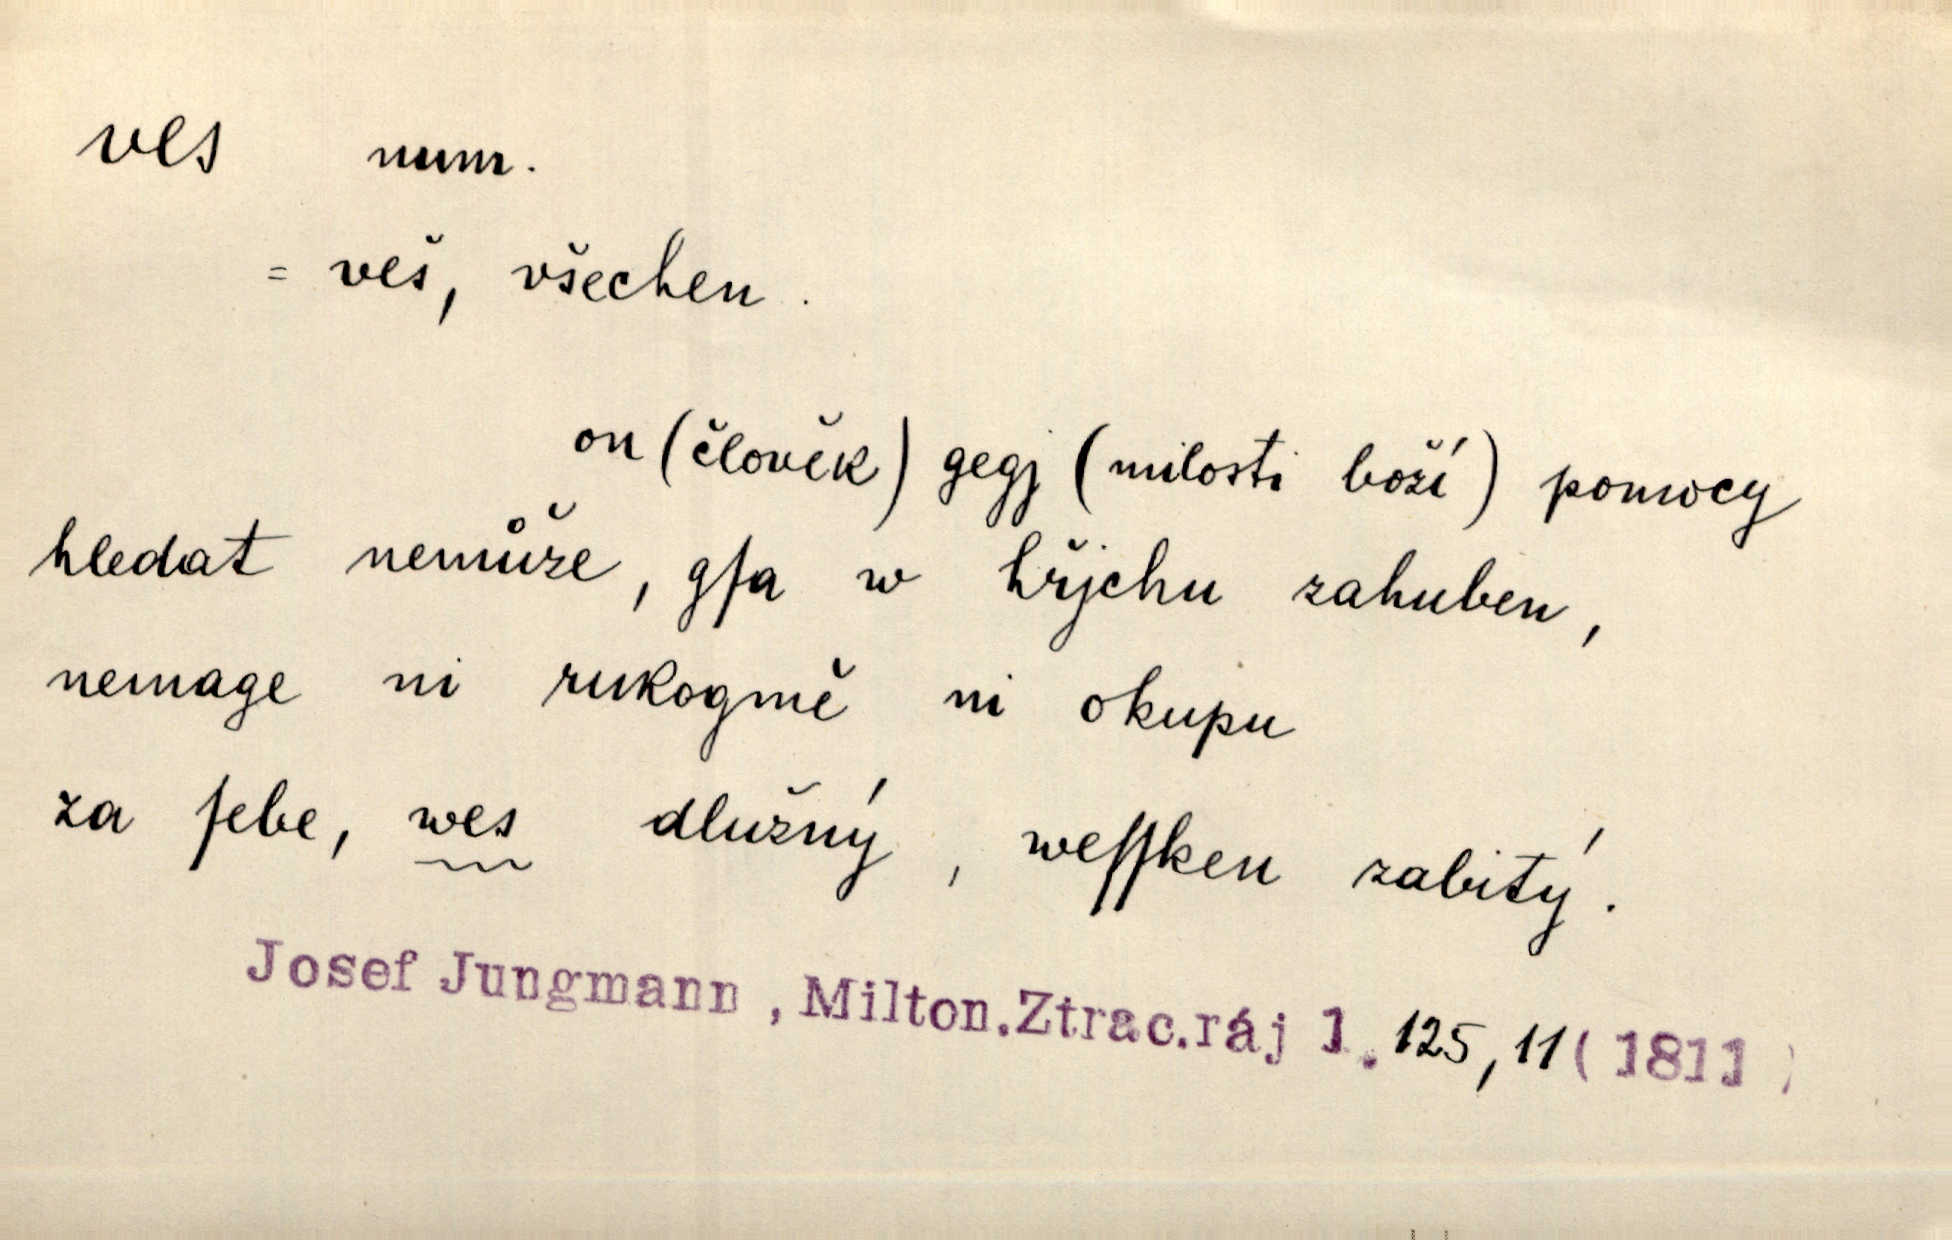 ves num.
= veš, všechen.
on (člověk) gegj (milosti boží) pomocy
hledat nemůže, gſa w hřjchu zahuben,
nemage ni rukogmě ni okupu
za ſebe, wes dlužný, weſſken zabitý.
Josef Jungmann, Milton.Ztrac.ráj 1. 125, 11 (1811)